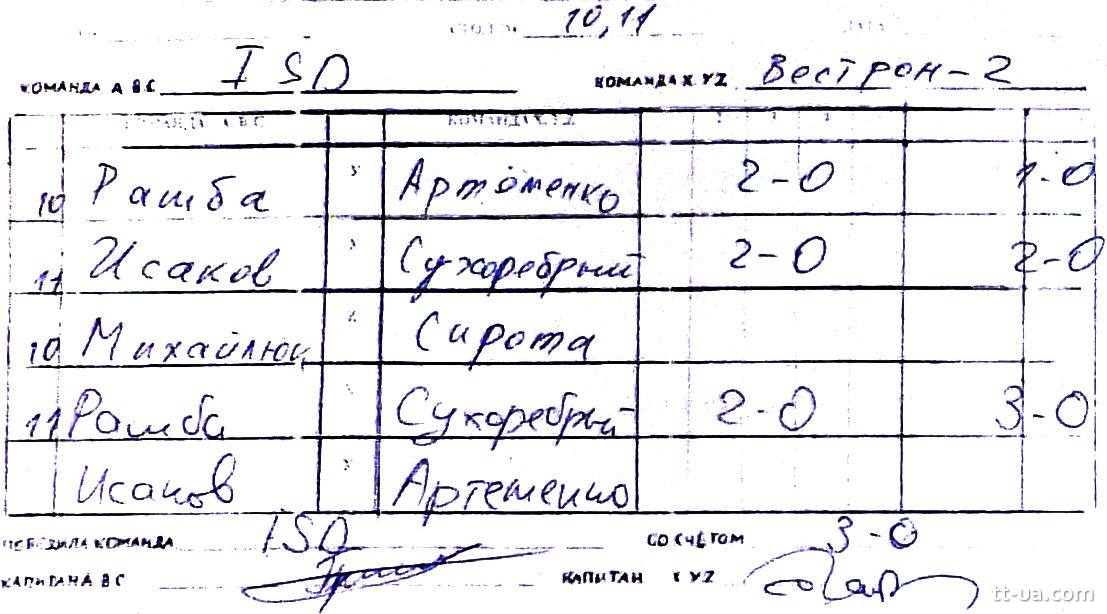 10,11
КОМАНДА А В С ISD КОМАНДА X Y Z Вестрон-2
КОМАНДА А.В.С КОМАНДА X.Y.Z
10 Рашба Артёменко 2-0 1-0
11 Исаков Сухоребрый 2-0 2-0
10 Михайлюк Сирота
11 Рашба Сухоребрый 2-0 3-0
Исаков Артеменко
ПОБЕДИЛА КОМАНДА ISD СО СЧЁТОМ 3-0
КАПИТАН А В С КАПИТАН X Y Z
tt-ua.com